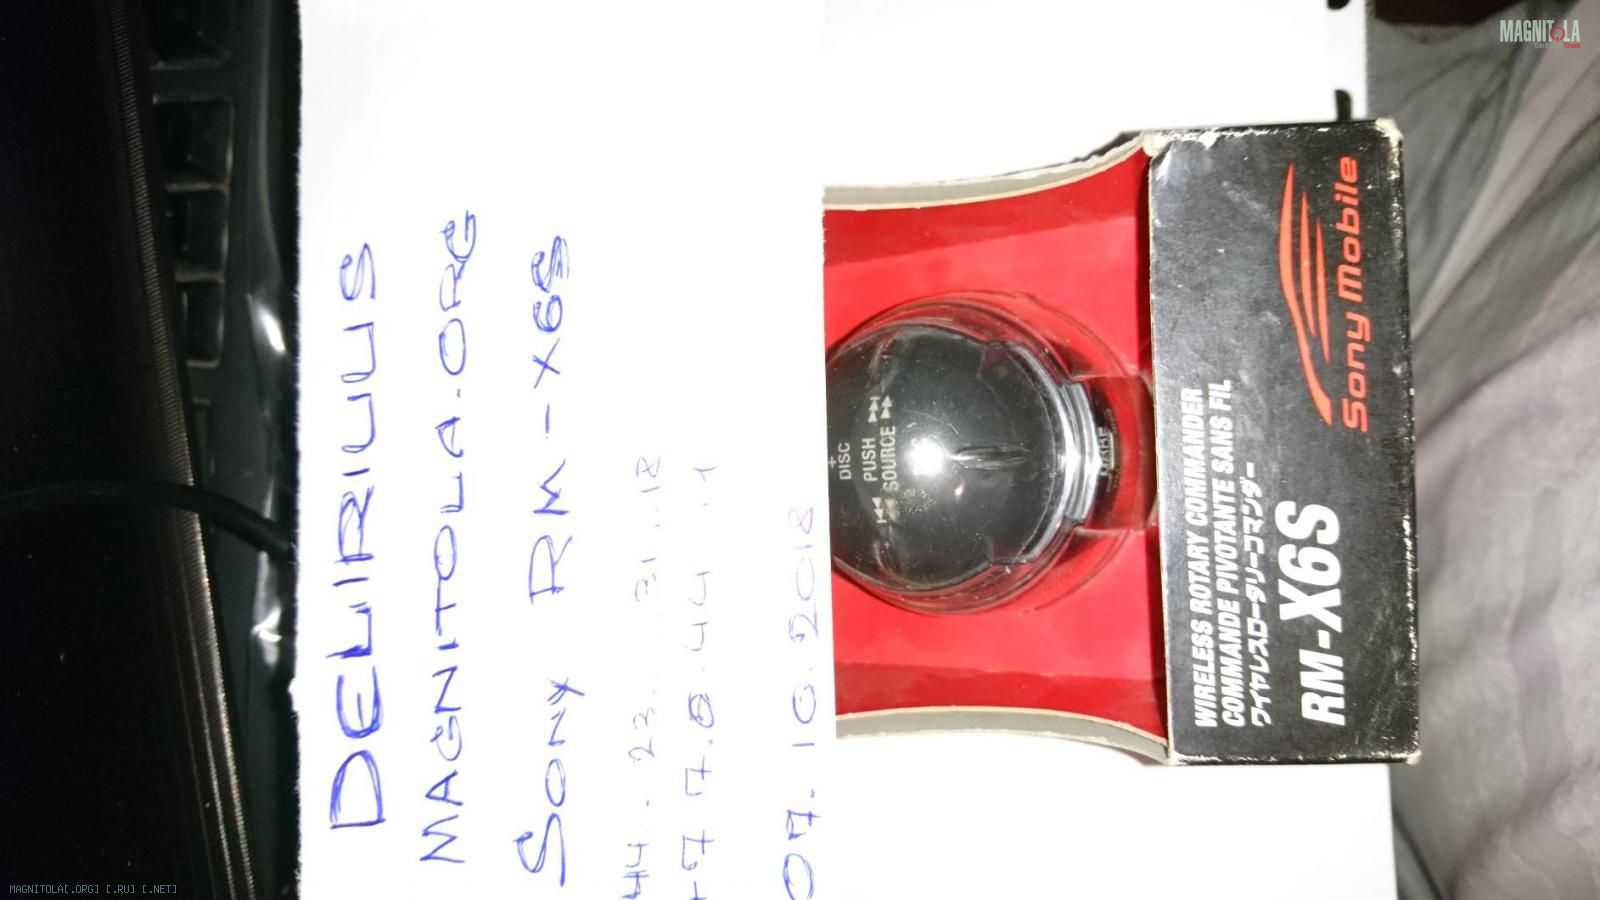 DELIRIUUS
MAGNITOLA.ORG
SONY RM-X6S
07.10.2018
+
DISC
PUSH
SOURCE
WIRELESS ROTARY COMMANDER
COMMANDE PIVOTANTE SANS FIL
ワイヤレスロータリーコマンダー
RM-X6S
Sony Mobile
MAGNITOLA
Team
MAGNITOLA[.ORG] [.RU] [.NET]